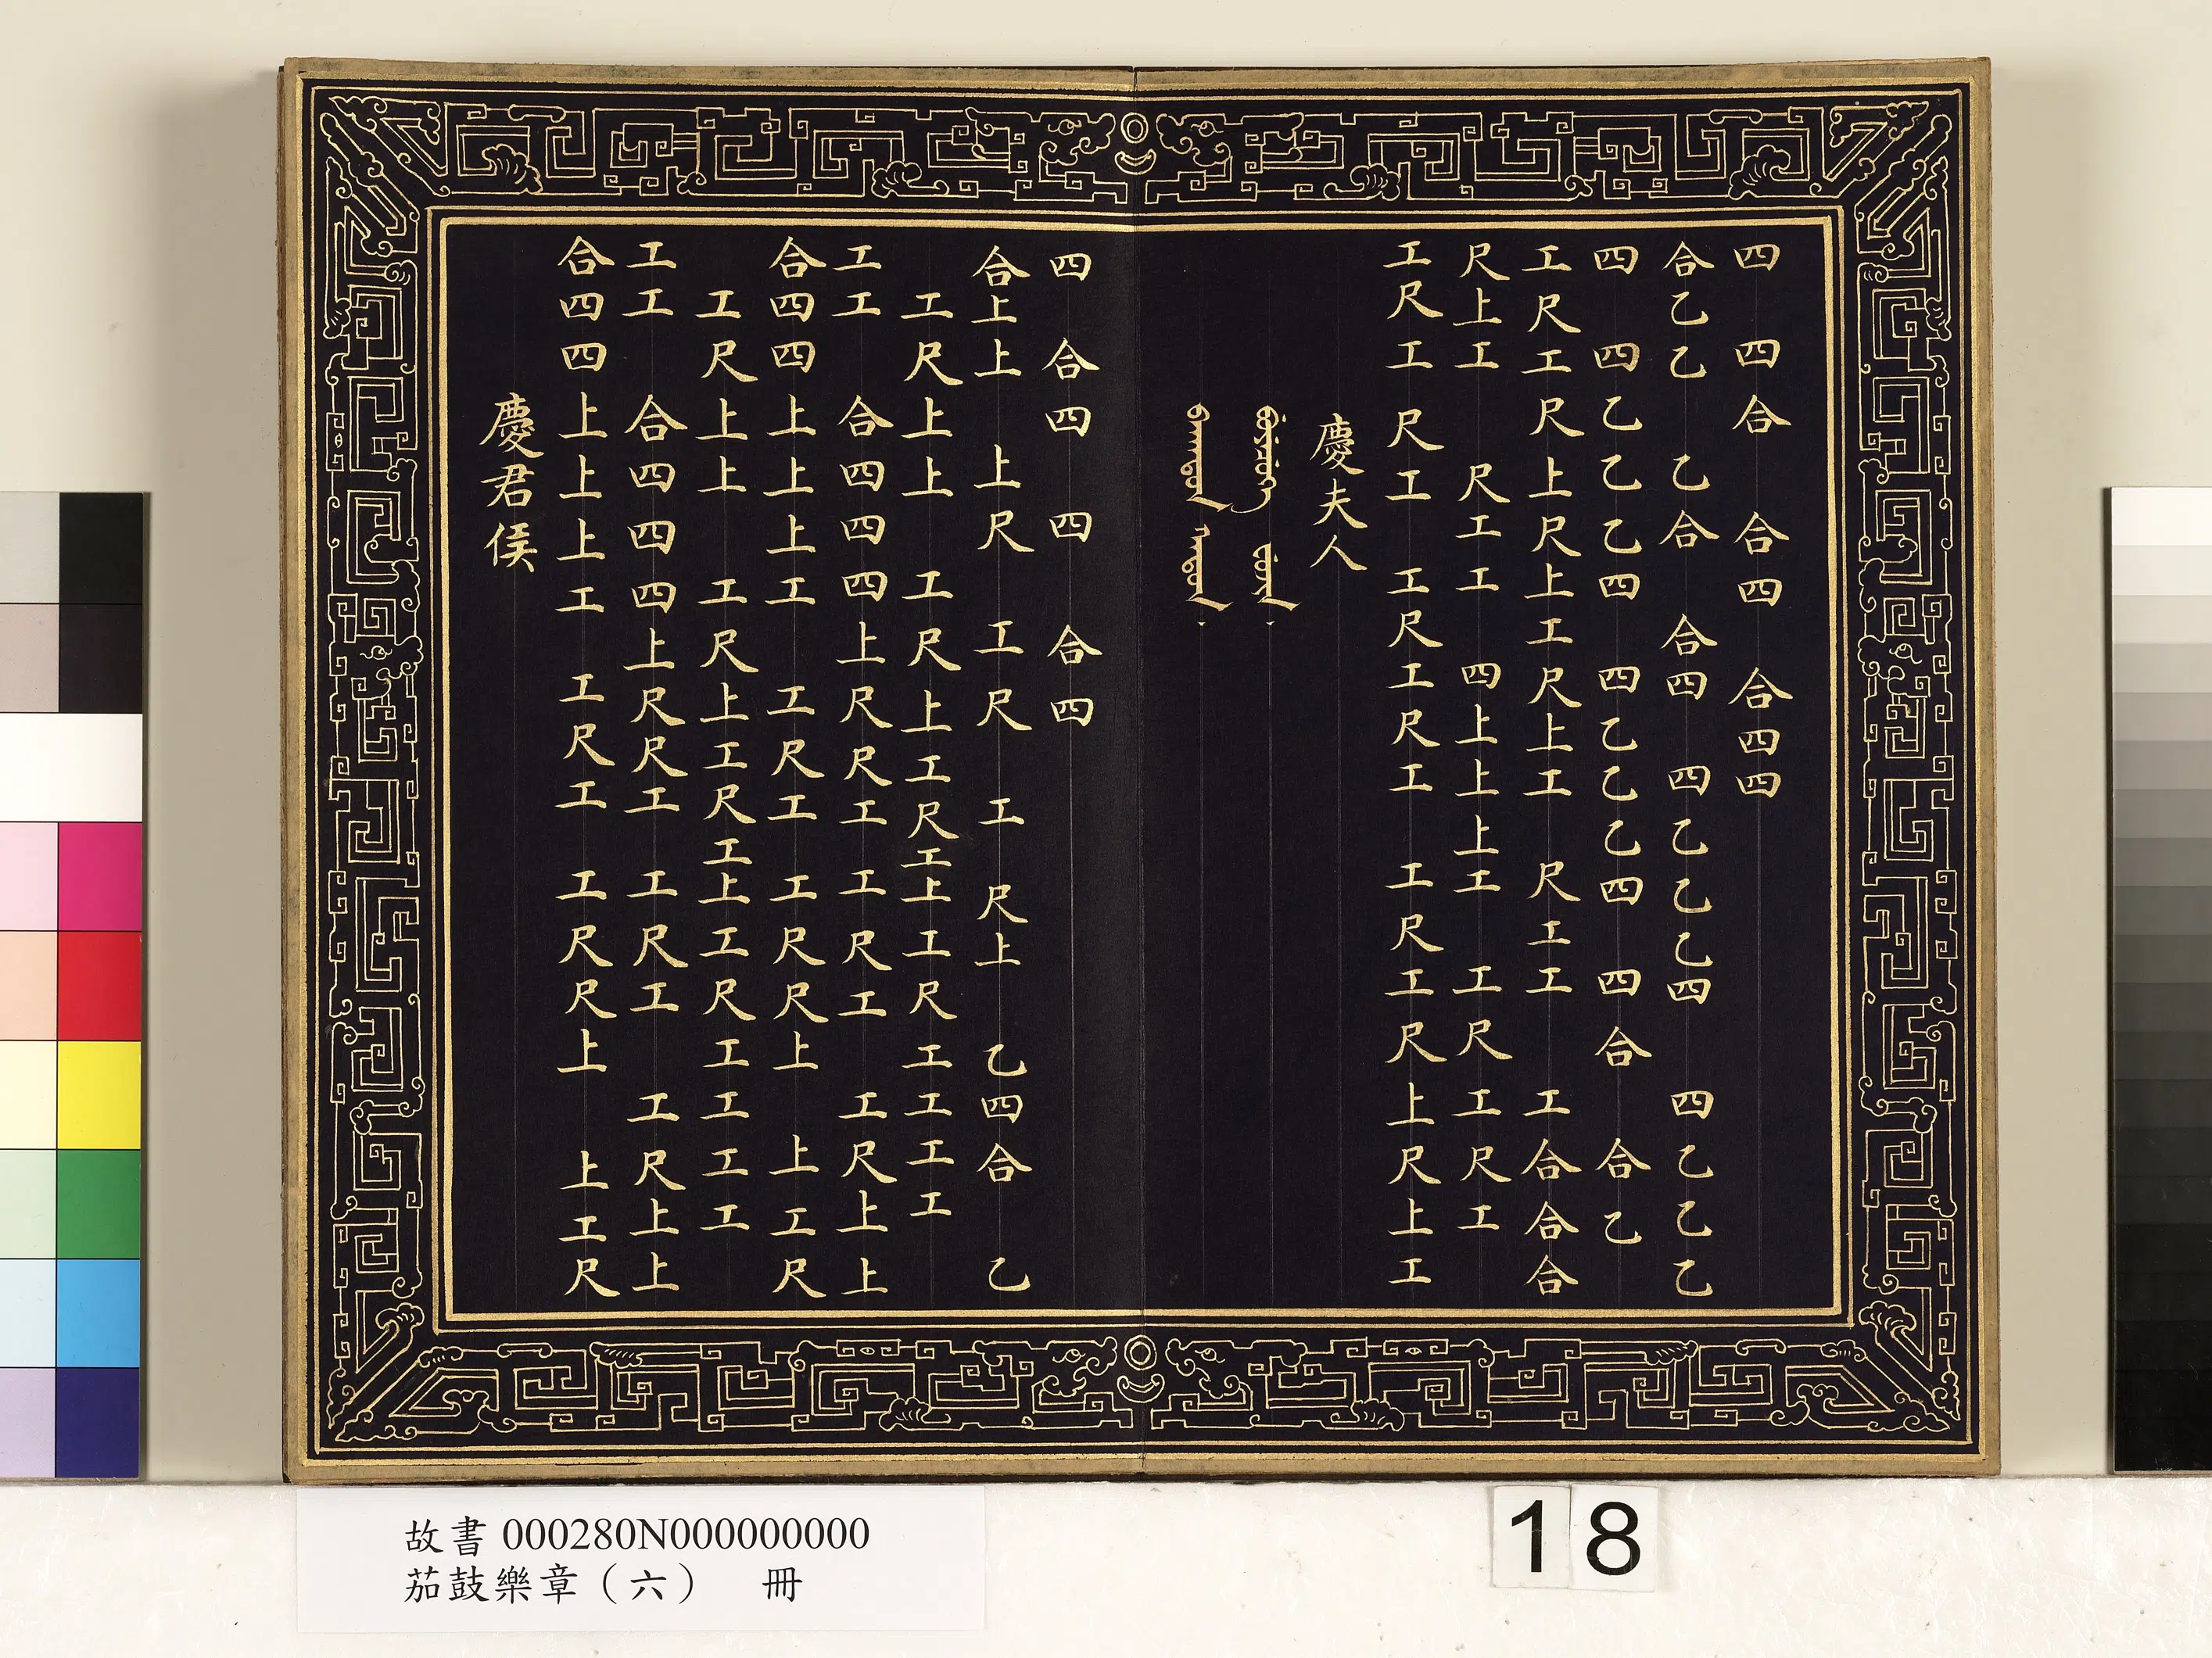 四四合合四合四四
合乙乙乙合合四四乙乙乙四四乙乙乙
四四乙乙乙四四乙乙乙四四合合乙
工尺工尺上尺上工尺上工尺工工工合合合
尺上工尺工工四上上上工工尺工尺工
工尺工尺工工尺工尺工工尺工尺上尺上工
慶夫人
四合四四合四
合上上上尺工尺工尺上乙四合乙
工尺上上工尺上工尺工上工尺工工工工
工工合四四四上尺尺工工尺工工尺上上
合四四上上上工工尺工工尺尺上上工尺
工尺上上工尺上工尺工上工尺工工工工
工工合四四四上尺尺工工尺工工尺上上
合四四上上上工工尺工工尺尺上上工尺
慶君侯
故書 000280N000000000
茄鼓樂章（六） 冊
18